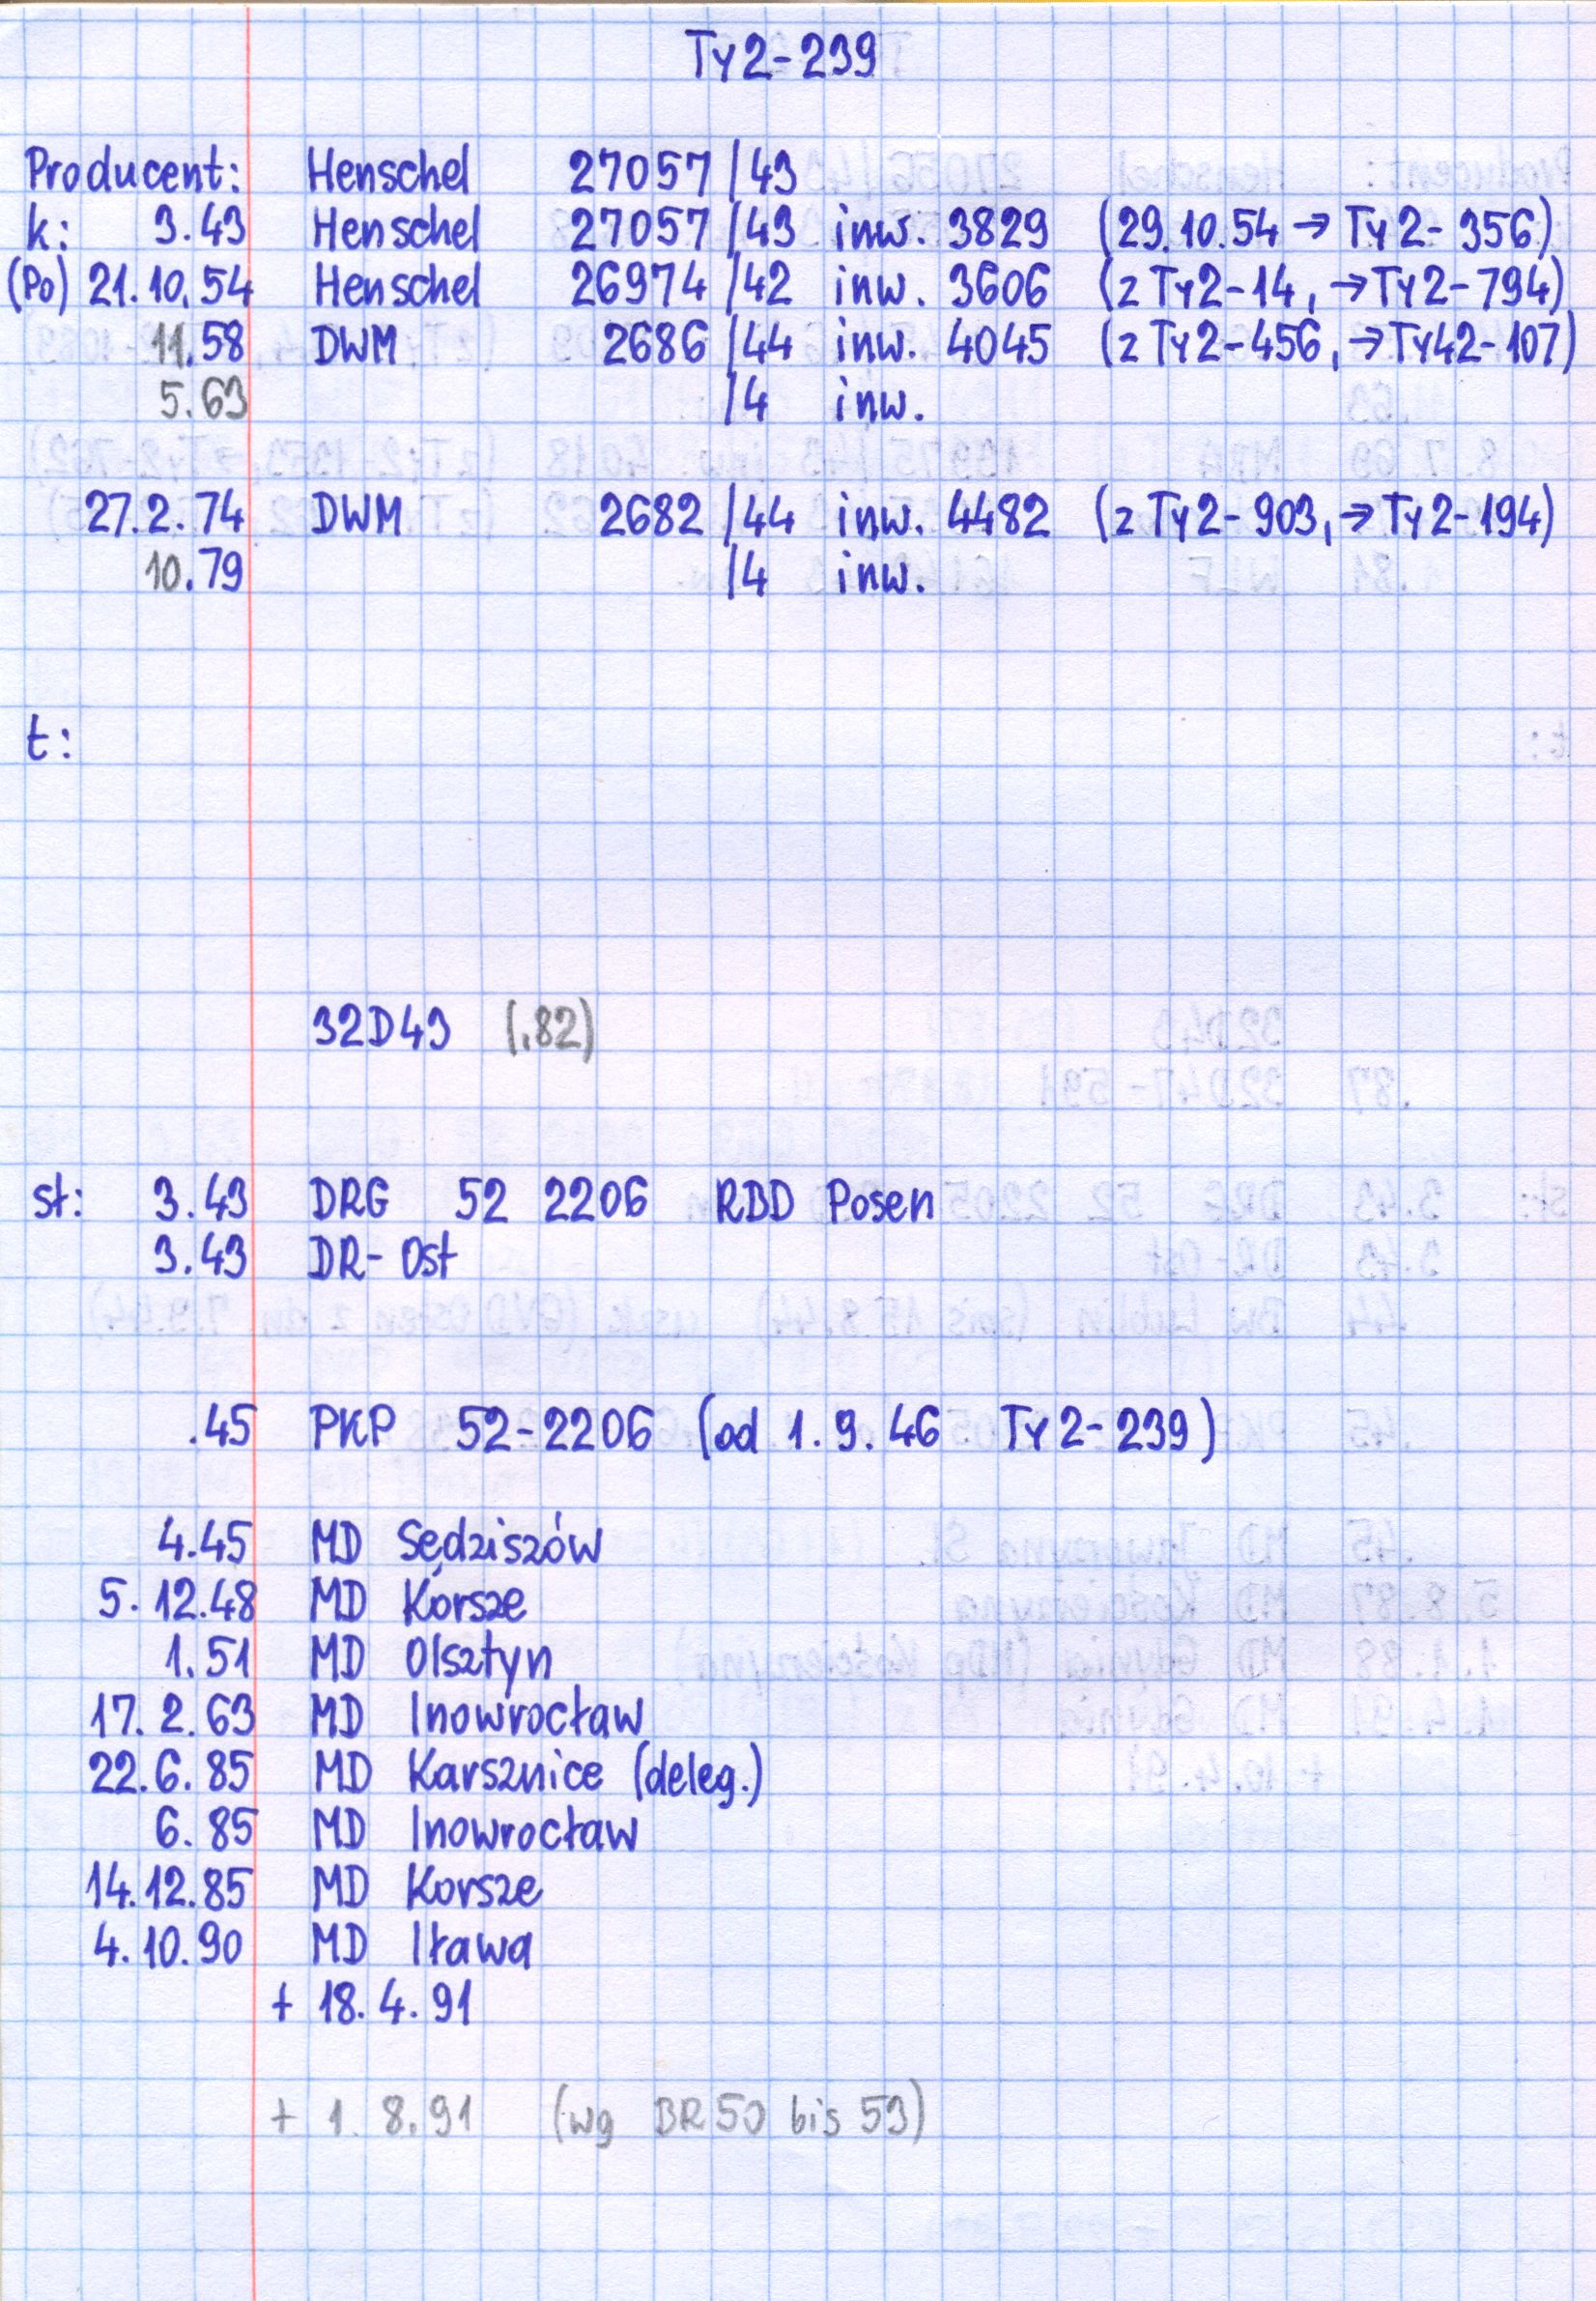 Ty2-239
Producent: Henschel 27057/43
k: 3.43 Henschel 27057/43 inw. 3829 (29.10.54 → Ty2-356)
(Po) 21.10.54 Henschel 26974/42 inw. 3606 (z Ty2-14, → Ty2-794)
11.58 DWM 2686/44 inw. 4045 (z Ty2-456, → Ty42-107)
5.63 /4 inw.
27.2.74 DWM 2682/44 inw. 4482 (z Ty2-903, → Ty2-194)
10.79 /4 inw.
t:
32D43 (.82)
st: 3.43 DRG 52 2206 RBD Posen
3.43 DR-Ost
.45 PKP 52-2206 (od 1.9.46 Ty2-239)
4.45 MD Sędziszów
5.12.48 MD Korsze
1.51 MD Olsztyn
17.2.63 MD Inowrocław
22.6.85 MD Karsznice (deleg.)
6.85 MD Inowrocław
14.12.85 MD Korsze
4.10.90 MD Iława
+ 18.4.91
+ 1.8.91 (wg BR50 bis 59)